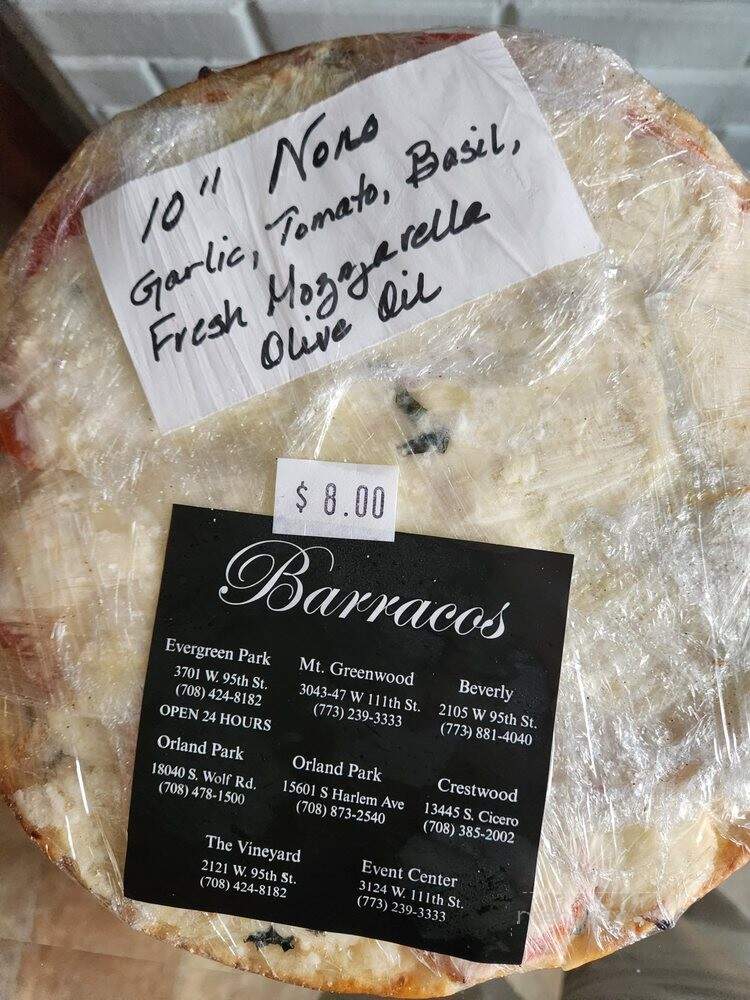 10" Nono
Garlic, Tomato, Basil,
Fresh Mozzarella
Olive Oil
$ 8.00
Barracos
Evergreen Park
3701 W. 95th St.
(708) 424-8182
OPEN 24 HOURS
Mt. Greenwood
3043-47 W 111th St.
(773) 239-3333
Beverly
2105 W 95th St.
(773) 881-4040
Orland Park
18040 S. Wolf Rd.
(708) 478-1500
Orland Park
15601 S Harlem Ave
(708) 873-2540
Crestwood
13445 S. Cicero
(708) 385-2002
The Vineyard
2121 W. 95th St.
(708) 424-8182
Event Center
3124 W. 111th St.
(773) 239-3333